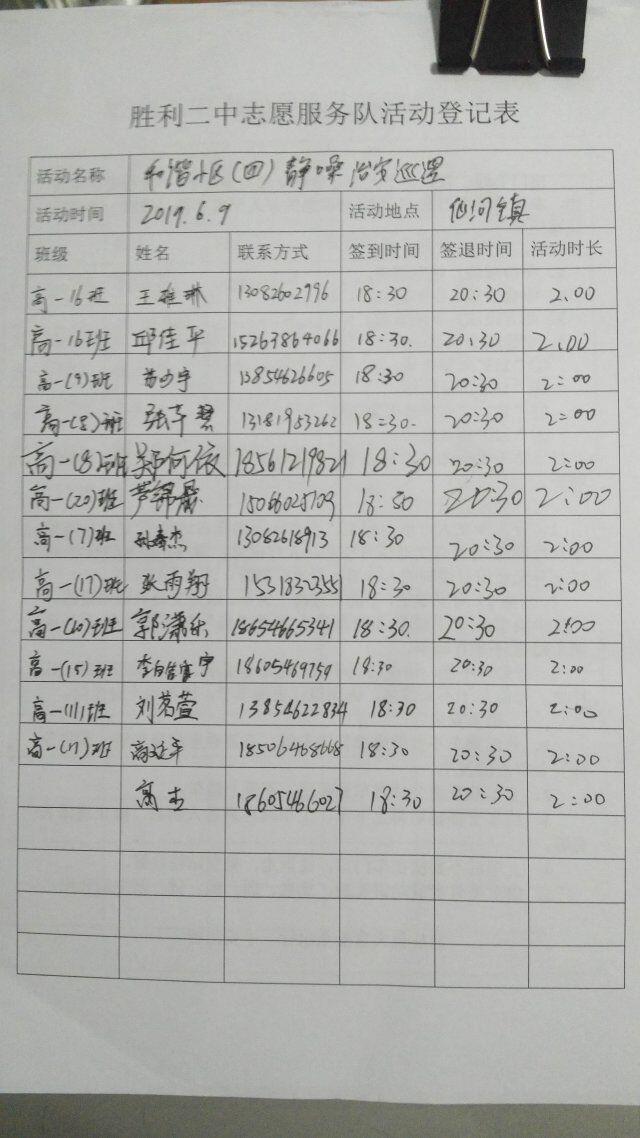 胜利二中志愿服务队活动登记表
活动名称 和谐小区(四)静噪治安巡逻
活动时间 2019.6.9 活动地点 仙河镇
班级 姓名 联系方式 签到时间 签退时间 活动时长
高一16班 王雅琳 13082602996 18:30 20:30 2.00
高一16班 邱佳平 15263864066 18:30. 20.30 2.00
高一(9)班 13854626605 18:30 20:30 2:00
高一(8)班 13181953262 18:30. 20:30 2:00
高一(8)班 郑何依 18561219821 18:30 20:30 2:00
高一(20)班 芦锦晟 15066025709 18:30 20:30 2:00
高一(7)班 13082618913 18:30 20:30 2:00
高一(17)班 张雨翔 15318323551 18:30 20:30 2:00
高一(10)班 郭潇乐 18654665341 18:30. 20:30 2:00
高一(15)班 18605469759 18:30 20:30 2:00
高一(11)班 刘茗萱 13854622834 18:30 20:30 2:00
高一(7)班 高延平 18506468668 18:30 20:30 2:00
高杰 18605466027 18:30 20:30 2:00